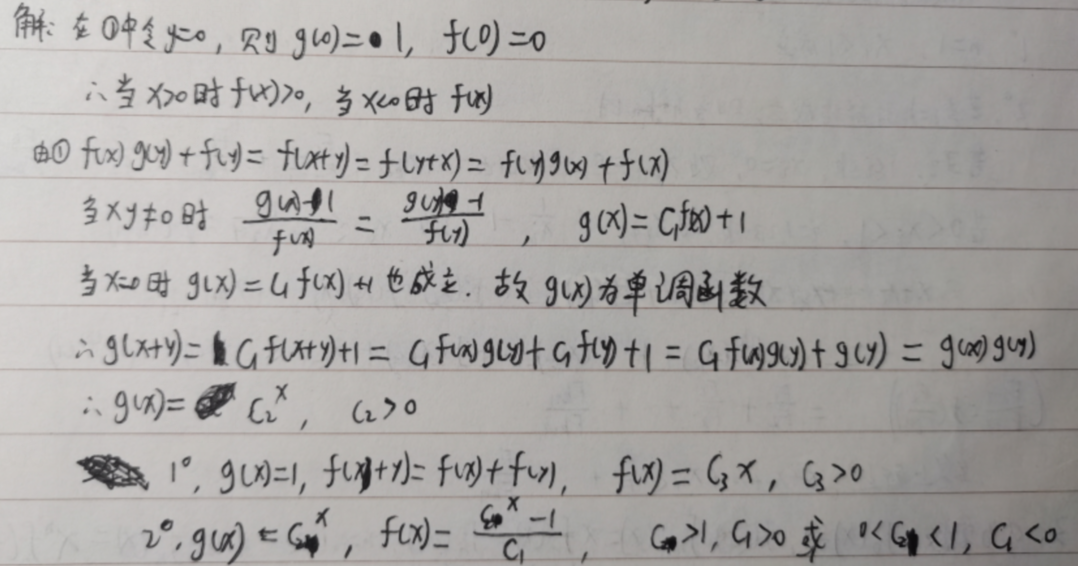 解: 在①中令y=0, 则 g(0)=1, f(0)=0
∴当 x>0 时 f(x)>0, 当 x<0 时 f(x)
由① f(x)g(y)+f(y)=f(x+y)=f(y+x)=f(y)g(x)+f(x)
当 xy≠0 时 \frac{g(x)-1}{f(x)} = \frac{g(y)-1}{f(y)}, g(x)=C₁f(x)+1
当 x=0 时 g(x)=C₁f(x)+1 也成立. 故 g(x)为单调函数
∴ g(x+y)= C₁f(x+y)+1 = C₁f(x)g(y)+C₁f(y)+1 = C₁f(x)g(y)+g(y) = g(x)g(y)
∴ g(x)= C₂^x, C₂>0
1°, g(x)=1, f(x+y)=f(x)+f(y), f(x)=C₃x, C₃>0
2°. g(x)=C₂^x, f(x)=\frac{C₂^x-1}{C₁}, C₂>1, C₁>0 或 0<C₂<1, C₁<0